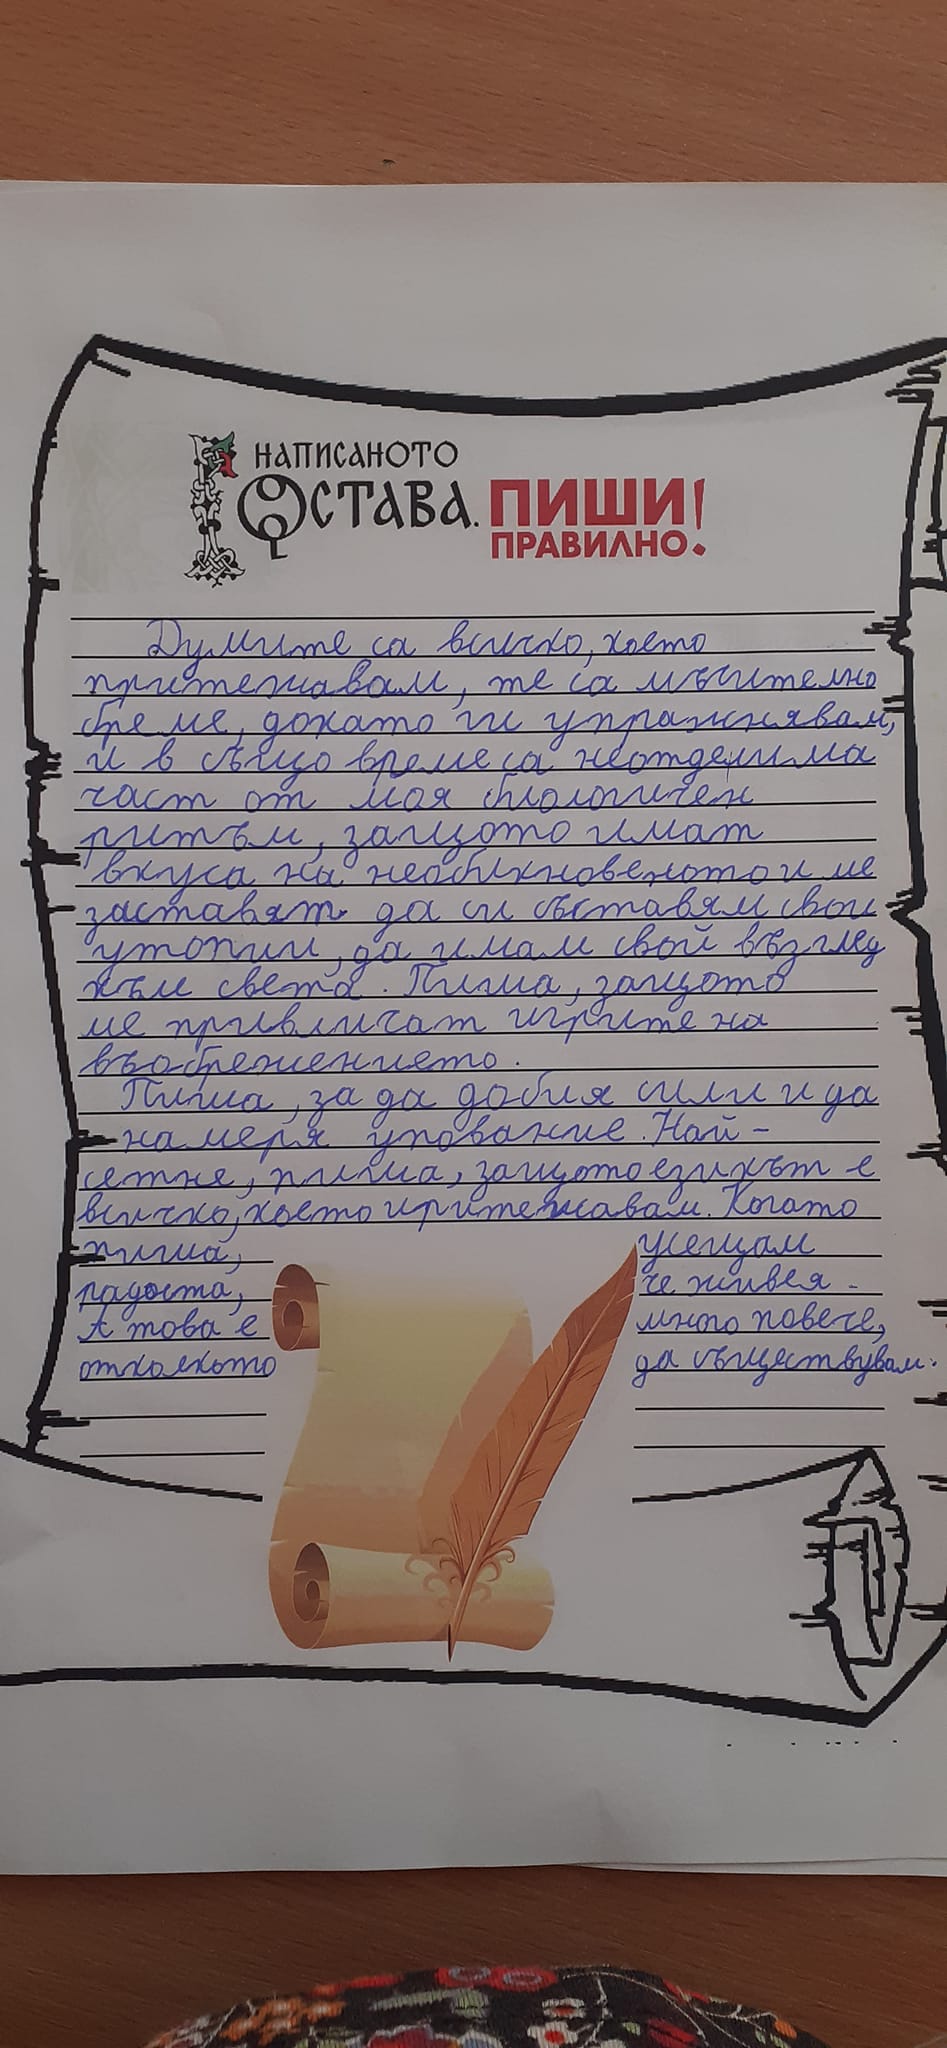 НАПИСАНОТО
ОСТАВА. ПИШИ
ПРАВИЛНО!
Думите са всичко, което
притежавам, те са мъчително
бреме, докато ги упражнявам,
и в същo време са неотделима
част от моя биологичен
ритъм, защото имат
вкуса на необикновеното и ме
заставят да си съставям свои
утопии, да имам свой възглед
към света. Пиша, защото
ме привличат игрите на
въображението.
Пиша, за да добия сили и да
намеря упование. Най-
сетне, пиша, защото езикът е
всичко, което притежавам. Когато
пиша, усещам
радостта, че живея -
А това е много повече,
отколкото да съществувам.